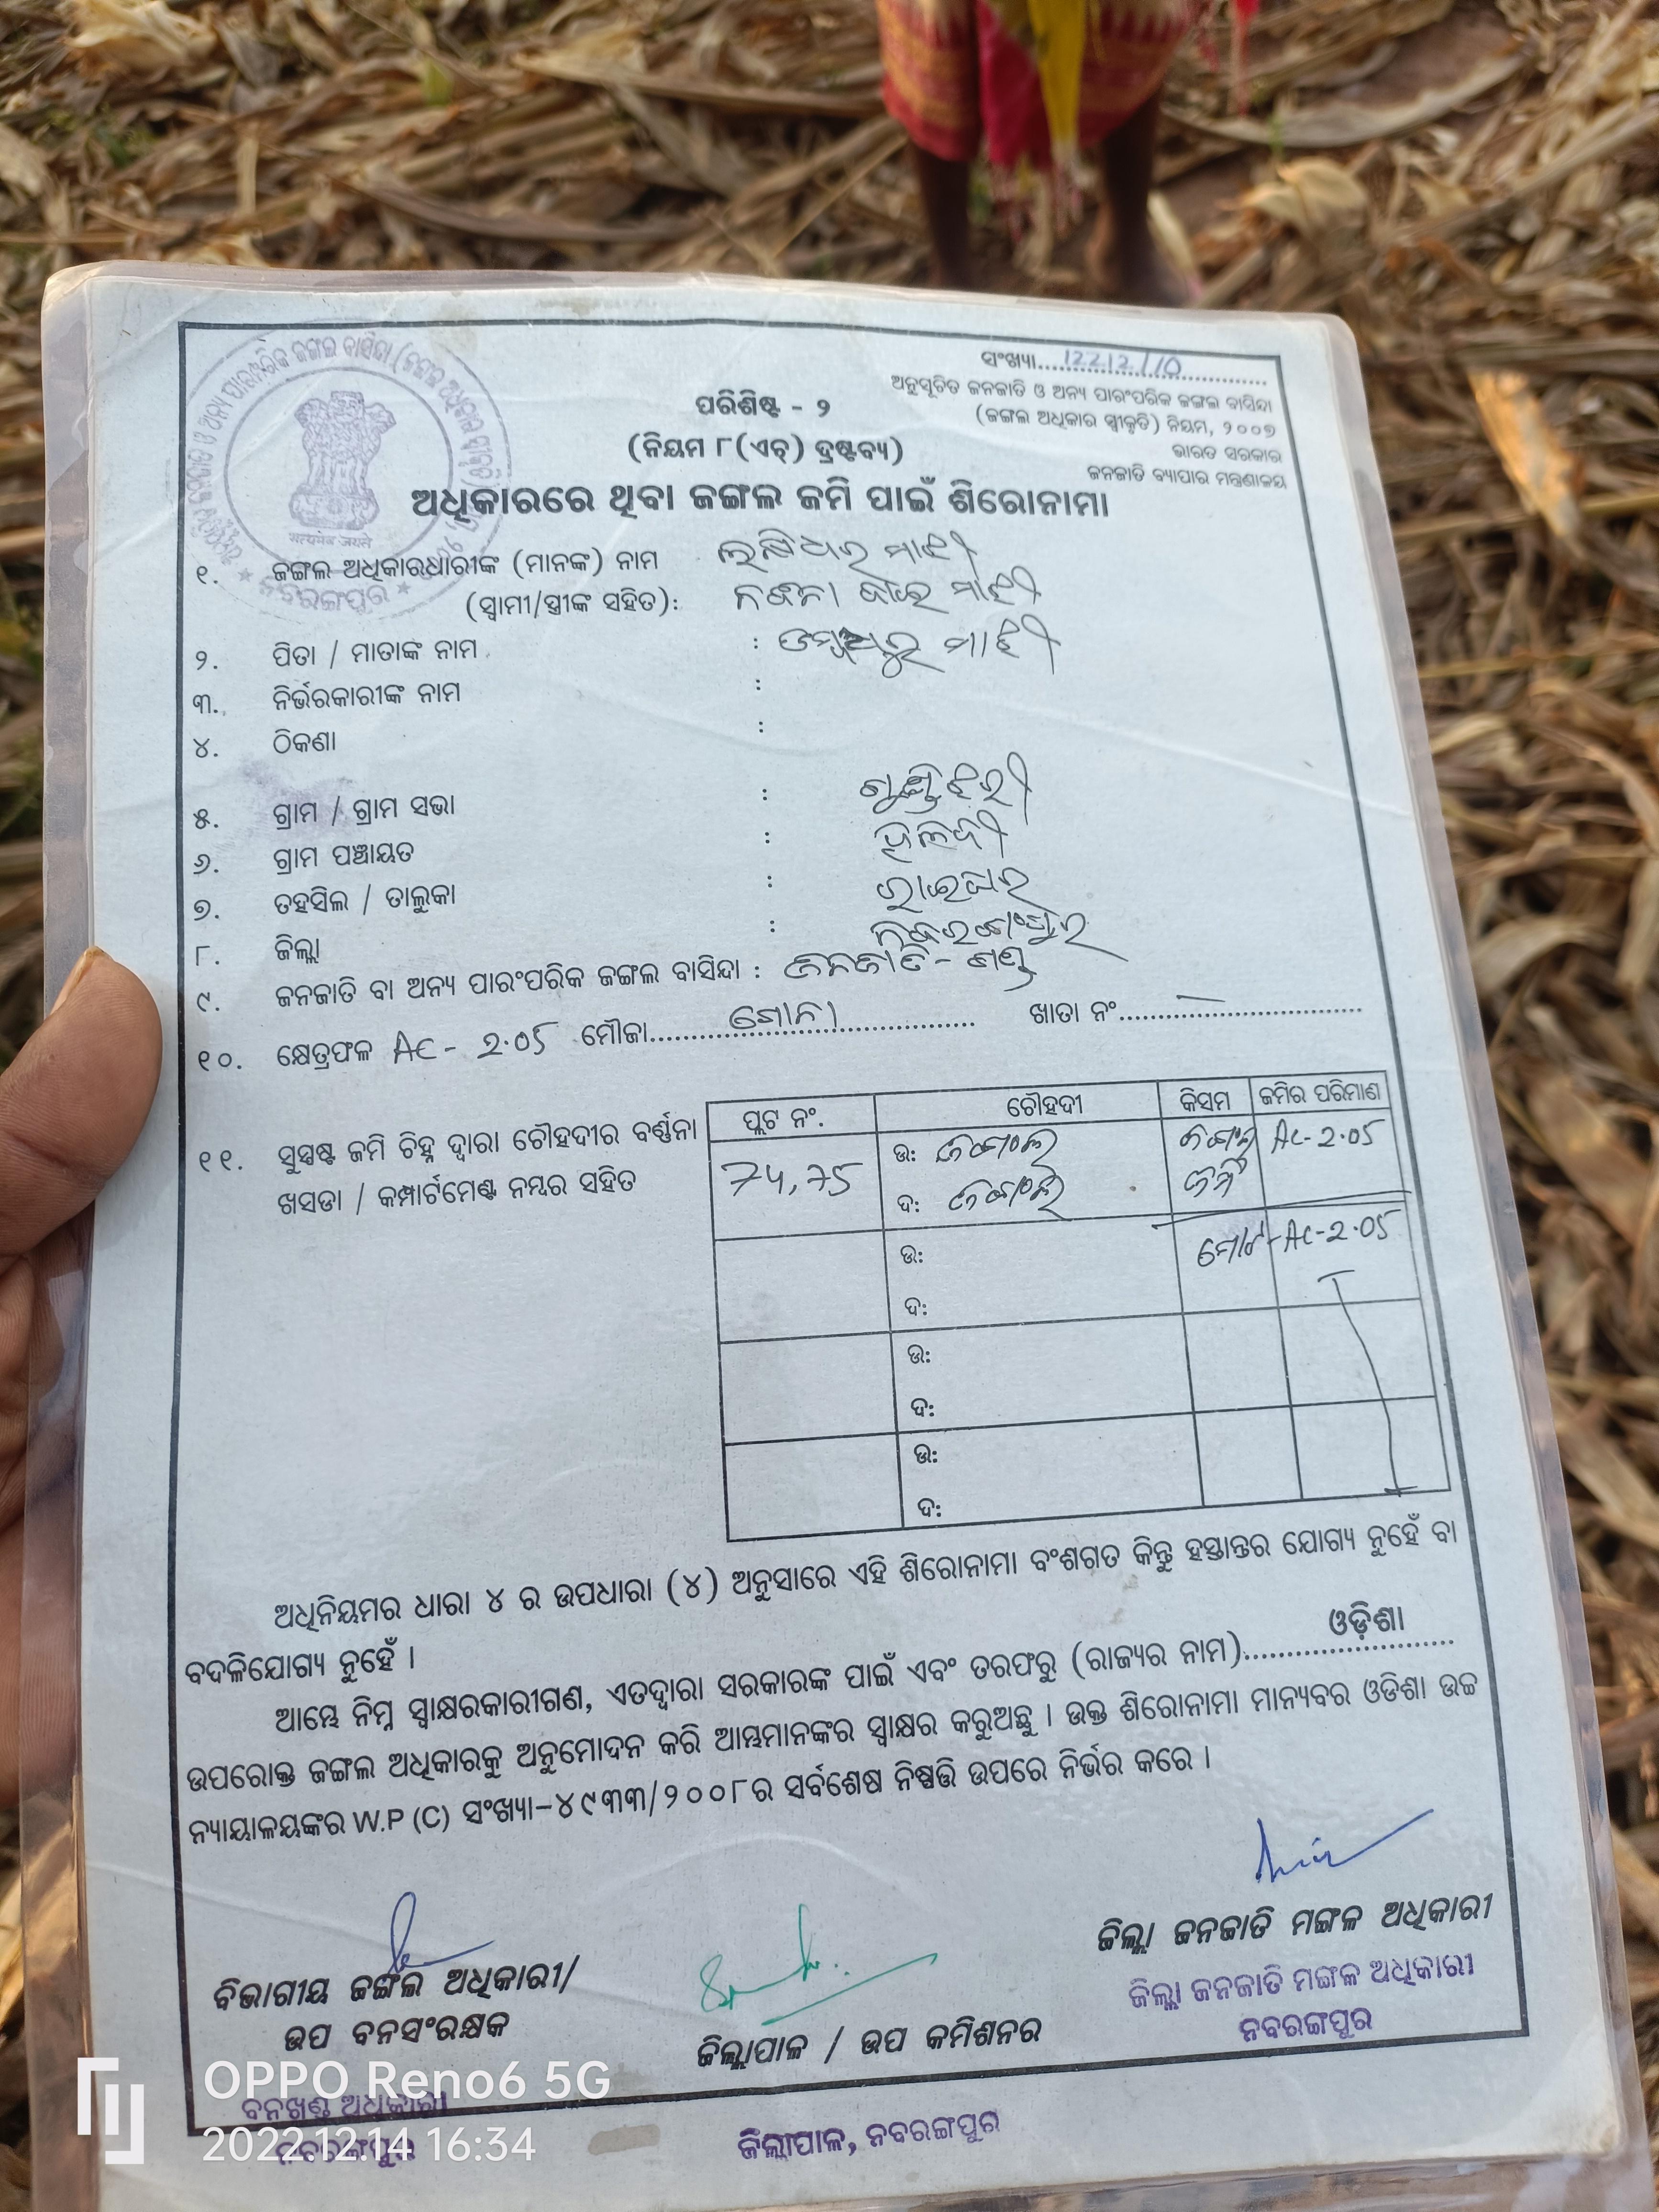 ସଂଖ୍ୟା....12212/10....
ଅନୁସୂଚିତ ଜନଜାତି ଓ ଅନ୍ୟ ପାରଂପରିକ ଜଙ୍ଗଲ ବାସିନ୍ଦା
(ଜଙ୍ଗଲ ଅଧିକାର ସ୍ୱୀକୃତି) ନିୟମ, ୨୦୦୭
ଭାରତ ସରକାର
ଜନଜାତି ବ୍ୟାପାର ମନ୍ତ୍ରଣାଳୟ
ପରିଶିଷ୍ଟ - ୨
(ନିୟମ ୮(ଏଚ୍) ଦ୍ରଷ୍ଟବ୍ୟ)
ଅଧିକାରରେ ଥିବା ଜଙ୍ଗଲ ଜମି ପାଇଁ ଶିରୋନାମା
सत्यमेव जयते
ନବରଙ୍ଗପୁର
୧. ଜଙ୍ଗଲ ଅଧିକାରଧାରୀଙ୍କ (ମାନଙ୍କ) ନାମ ମାଝୀ
(ସ୍ୱାମୀ/ସ୍ତ୍ରୀଙ୍କ ସହିତ): ମାଝୀ
୨. ପିତା / ମାତାଙ୍କ ନାମ : ମାଝୀ
୩. ନିର୍ଭରକାରୀଙ୍କ ନାମ :
୪. ଠିକଣା :
୫. ଗ୍ରାମ / ଗ୍ରାମ ସଭା :
୬. ଗ୍ରାମ ପଞ୍ଚାୟତ : ହଲଦୀ
୭. ତହସିଲ / ତାଲୁକା : ରାଇଘର
୮. ଜିଲ୍ଲା : ନବରଙ୍ଗପୁର
୯. ଜନଜାତି ବା ଅନ୍ୟ ପାରଂପରିକ ଜଙ୍ଗଲ ବାସିନ୍ଦା : ଜନଜାତି - ଗଣ୍ଡ
୧୦. କ୍ଷେତ୍ରଫଳ AC - 2.05 ମୌଜା....ଗୋନା.... ଖାତା ନଂ....—....
୧୧. ସୁସ୍ପଷ୍ଟ ଜମି ଚିହ୍ନ ଦ୍ୱାରା ଚୌହଦୀର ବର୍ଣ୍ଣନା
ଖସଡା / କମ୍ପାର୍ଟମେଣ୍ଟ ନମ୍ବର ସହିତ
ପ୍ଲଟ ନଂ. ଚୌହଦୀ କିସମ ଜମିର ପରିମାଣ
74, 75 ଉ: ଜଙ୍ଗଲ ଜଙ୍ଗଲ AC- 2.05
ଦ: ଜଙ୍ଗଲ ଜମି
ଉ: ମୋଟ - AC-2.05
ଦ:
ଉ:
ଦ:
ଉ:
ଦ:
ଅଧିନିୟମର ଧାରା ୪ ର ଉପଧାରା (୪) ଅନୁସାରେ ଏହି ଶିରୋନାମା ବଂଶଗତ କିନ୍ତୁ ହସ୍ତାନ୍ତର ଯୋଗ୍ୟ ନୁହେଁ ବା
ବଦଳିଯୋଗ୍ୟ ନୁହେଁ ।
ଆମ୍ଭେ ନିମ୍ନ ସ୍ୱାକ୍ଷରକାରୀଗଣ, ଏତଦ୍ୱାରା ସରକାରଙ୍କ ପାଇଁ ଏବଂ ତରଫରୁ (ରାଜ୍ୟର ନାମ)....ଓଡ଼ିଶା....
ଉପରୋକ୍ତ ଜଙ୍ଗଲ ଅଧିକାରକୁ ଅନୁମୋଦନ କରି ଆମ୍ଭମାନଙ୍କର ସ୍ୱାକ୍ଷର କରୁଅଛୁ । ଉକ୍ତ ଶିରୋନାମା ମାନ୍ୟବର ଓଡିଶା ଉଚ୍ଚ
ନ୍ୟାୟାଳୟଙ୍କର W.P (C) ସଂଖ୍ୟା-୪୯୩୩/୨୦୦୮ର ସର୍ବଶେଷ ନିଷ୍ପତ୍ତି ଉପରେ ନିର୍ଭର କରେ ।
ବିଭାଗୀୟ ଜଙ୍ଗଲ ଅଧିକାରୀ/
ଉପ ବନସଂରକ୍ଷକ
ବନଖଣ୍ଡ ଅଧିକାରୀ
ନବରଙ୍ଗପୁର
ଜିଲ୍ଲାପାଳ / ଉପ କମିଶନର
ଜିଲ୍ଲାପାଳ, ନବରଙ୍ଗପୁର
ଜିଲ୍ଲା ଜନଜାତି ମଙ୍ଗଳ ଅଧିକାରୀ
ଜିଲ୍ଲା ଜନଜାତି ମଙ୍ଗଳ ଅଧିକାରୀ
ନବରଙ୍ଗପୁର
OPPO Reno6 5G
2022.12.14 16:34